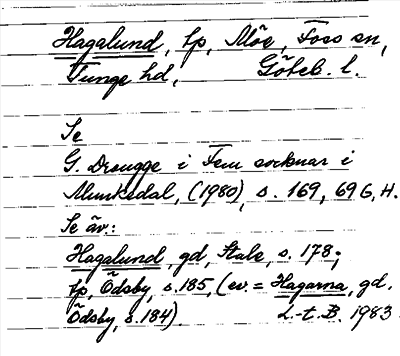 Hagalund, tp, Möe, Foss sn,
Tunge hd, Göteb. l.
Se
G. Drougge i Fem socknar i
Munkedal, (1980), s. 169, 69 G, H.
Se äv.:
Hagalund, gd, Stale, s. 178;
tp, Ödsby, s. 185, (ev. = Hagarna, gd.
Ödsby, s. 184). L.-t. B. 1983